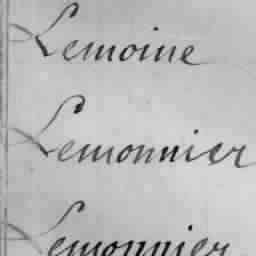 Lemoine
Lemonnier
Lemonnier